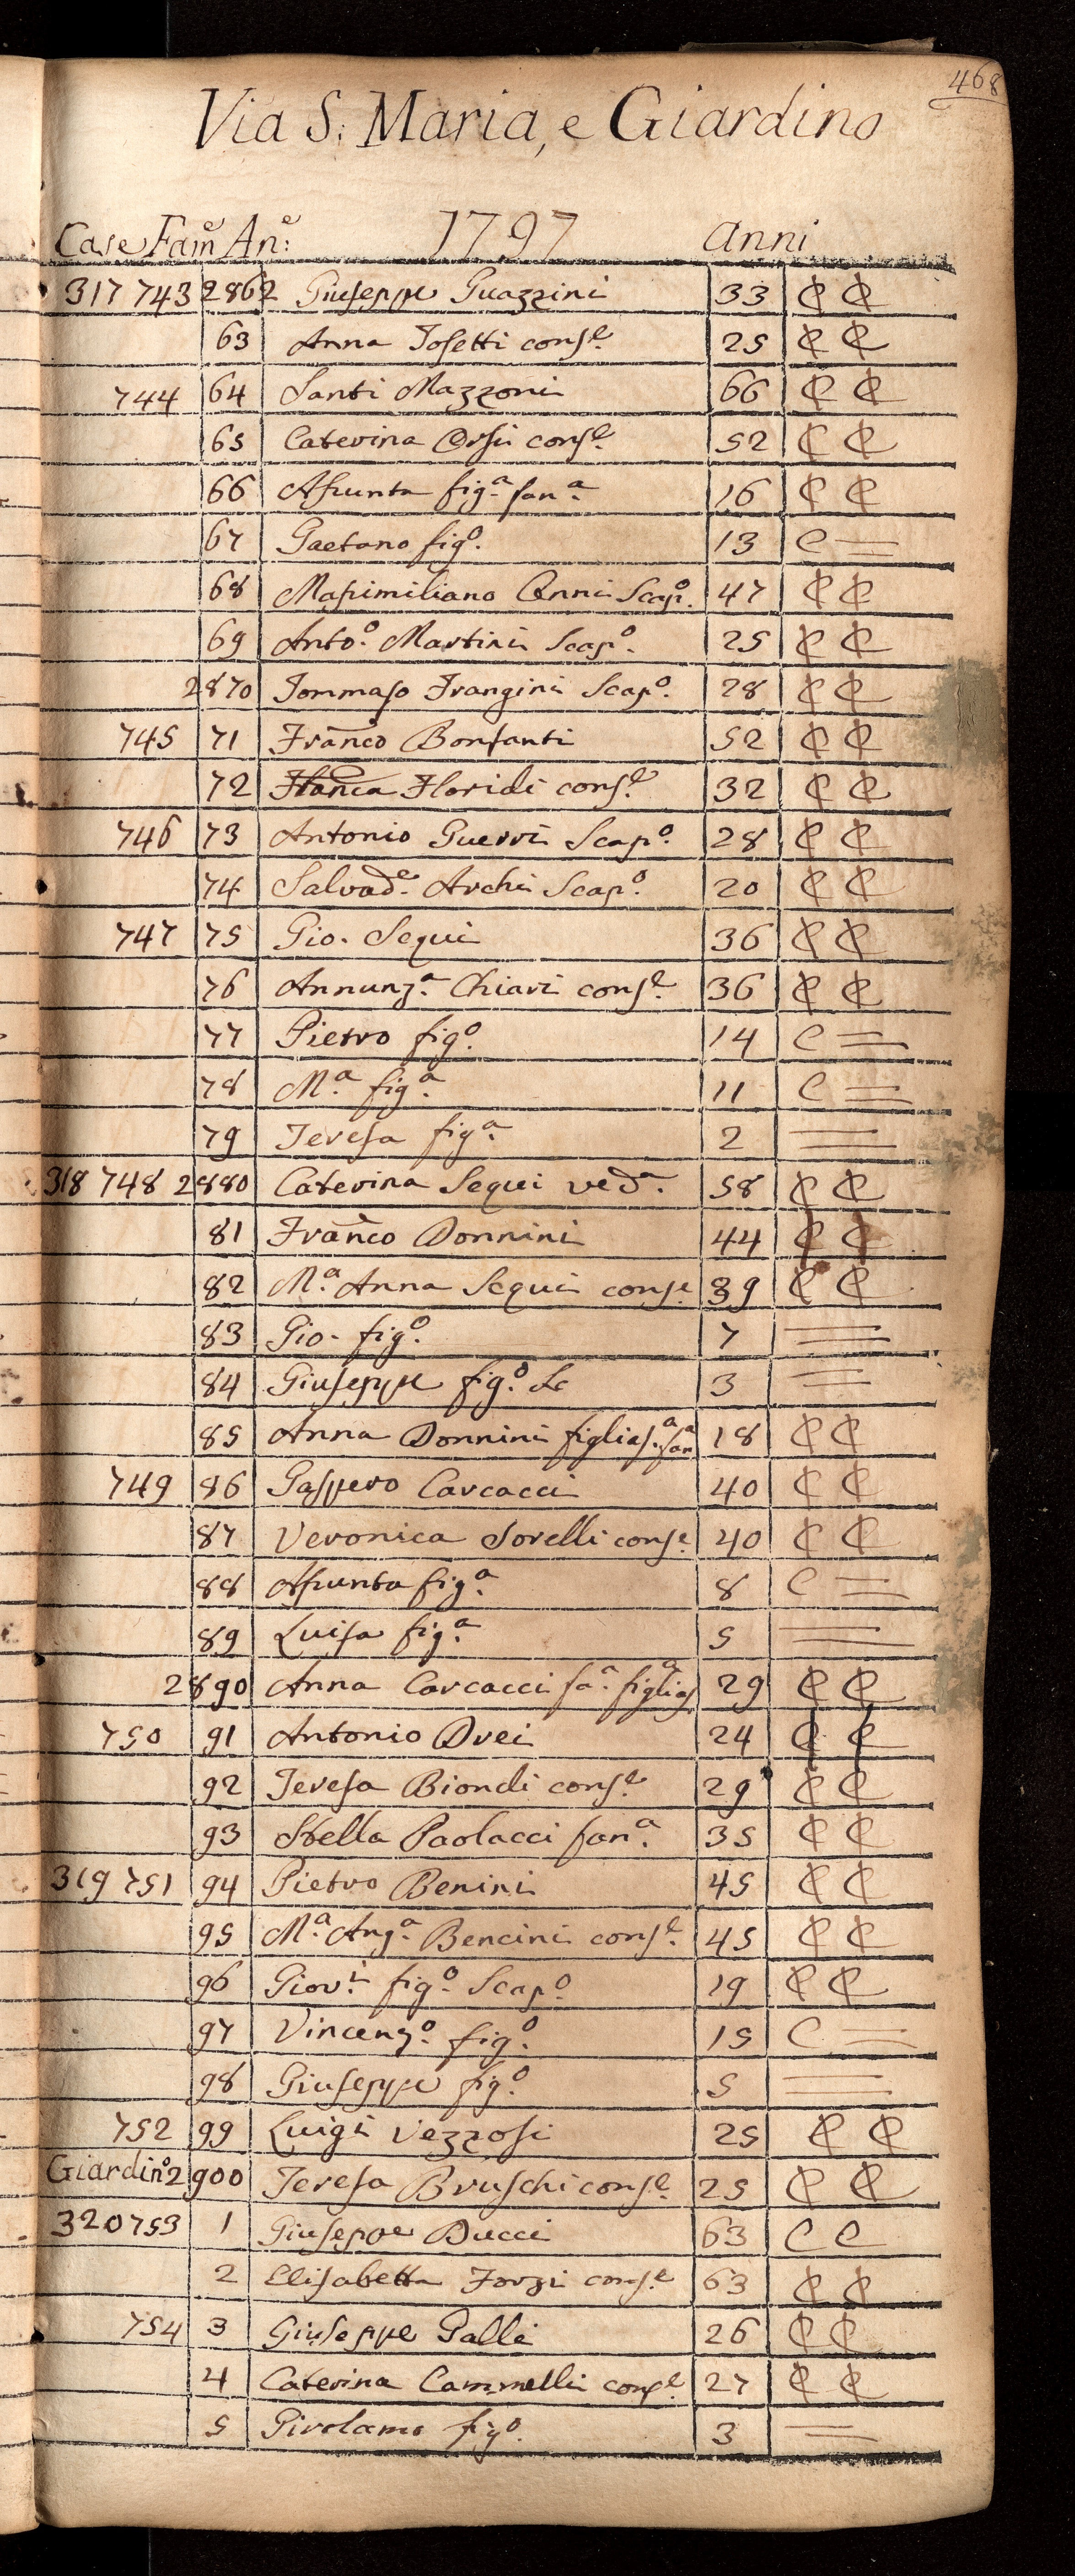 468
Via S. Maria, e Giardino
Case Fam.e An.e: 1797 Anni
317 743 2862 Giuseppe Guazzini 33 C C
63 Anna Tosetti cons.e 25 C C
744 64 Santi Mazzoni 66 C C
65 Caterina Orsi cons.e 52 C C
66 Assunta fig.a fan.a 16 C C
67 Gaetano fig.o 13 C =
68 Massimiliano Scap.o 47 C C
69 Anto.o Martini Scap.o 25 C C
2870 Tommaso Frangini Scap.o 28 C C
745 71 Franco Bonfanti 52 C C
72 Franca Floridi cons.e 32 C C
746 73 Antonio Guerri Scap.o 28 C C
74 Salvad.e Archi Scap.o 20 C C
747 75 Gio. Sequi 36 C C
76 Annunz.a Chiari cons.e 36 C C
77 Pietro fig.o 14 C =
78 M.a fig.a 11 C =
79 Teresa fig.a 2 =
318 748 2880 Caterina Sequi ved.a 58 C C
81 Franco Donnini 44 C C
82 M.a Anna Sequi cons.e 39 C C
83 Gio. fig.o 7 =
84 Giuseppe fig.o Sc 3 =
85 Anna Donnini figlias.a fan.a 18 C C
749 86 Gaspero Carcacci 40 C C
87 Veronica Sorelli cons.e 40 C C
88 Assunta fig.a 8 C =
89 Luisa fig.a 5 =
2890 Anna Carcacci fa.a figlias.a 29 C C
750 91 Antonio Drei 24 C C
92 Teresa Biondi cons.e 29 C C
93 Stella Paolacci fan.a 35 C C
319 751 94 Pietro Benini 45 C C
95 M.a Ang.a Bencini cons.e 45 C C
96 Giov.i fig.o Scap.o 19 C C
97 Vincenz.o fig.o 15 C =
98 Giuseppe fig.o 5 =
752 99 Luigi Vezzosi 25 C C
Giardin.o 2900 Teresa Bruschi cons.e 25 C C
320 753 1 Giuseppe Ducci 63 C C
2 Elisabetta Forzi cons.e 63 C C
754 3 Giuseppe Galli 26 C C
4 Caterina Cammelli cons.e 27 C C
5 Girolamo fig.o 3 =